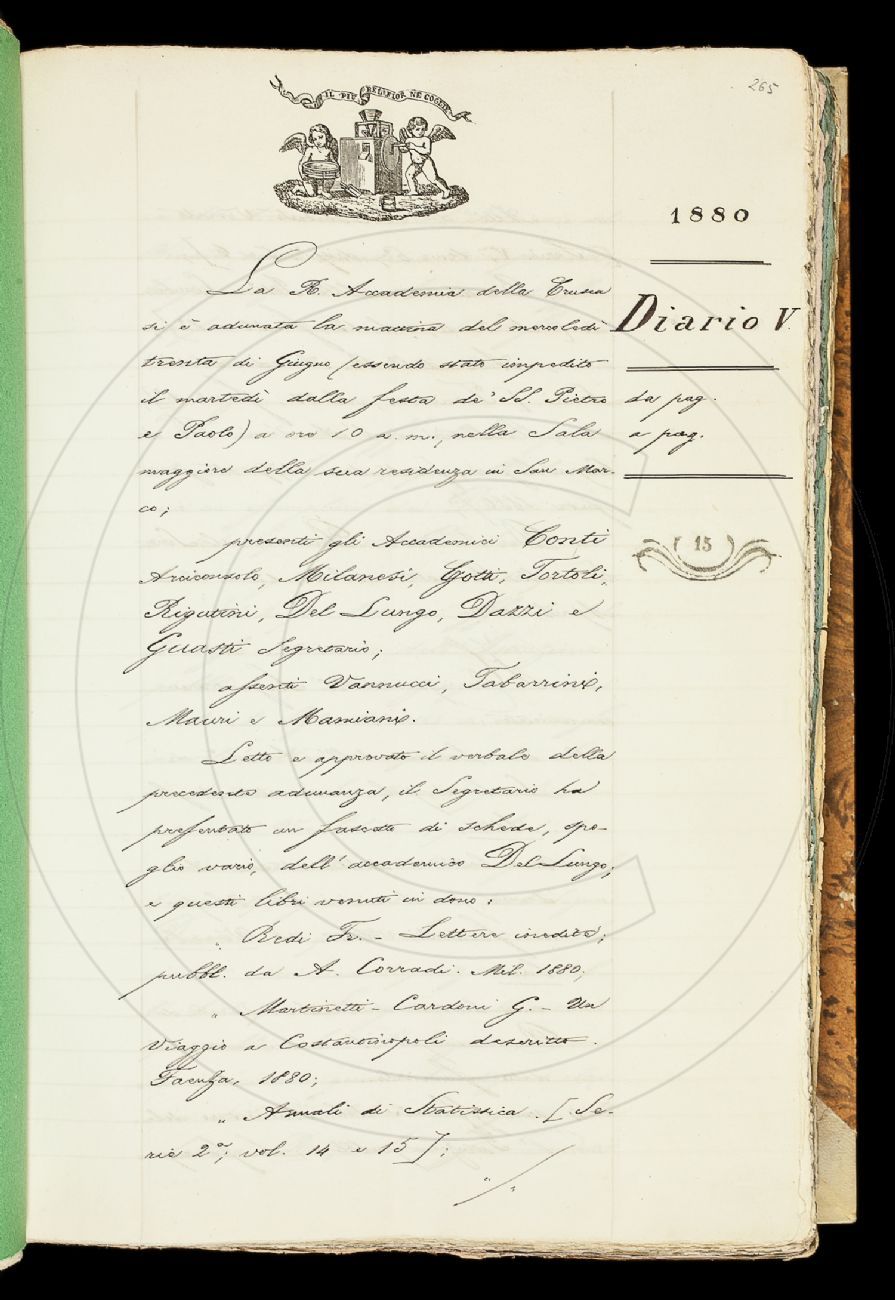 265
IL PIÙ BEL FIOR NE COGLIE
1880
Diario V.
da pag.
a pag.
15
La R. Accademia della Crusca
si è adunata la mattina del mercoledì
trenta di Giugno (essendo stato impedito
il martedì dalla festa de' SS. Pietro
e Paolo) a ore 10 a. m., nella Sala
maggiore della sua residenza in San Mar-
co;
presenti gli Accademici Conti
Arciconsolo, Milanesi, Gotti, Tortoli,
Rigutini, Del Lungo, Dazzi e
Guasti Segretario;
assenti Vannucci, Tabarrini,
Mauri e Mamiani.
Letto e approvato il verbale della
precedente adunanza, il Segretario ha
presentato un fascetto di schede, spo-
glio vario, dell' accademico Del-Lungo;
e questi libri venuti in dono:
„ Redi Fr. – Lettere inedite;
pubbl. da A. Corradi. Mil. 1880;
„ Martinetti – Cardoni G. – Un
Viaggio a Costantinopoli descritto.
Faenza, 1880;
„ Annali di Statistica. [Se-
rie 2ª; vol. 14 e 15];